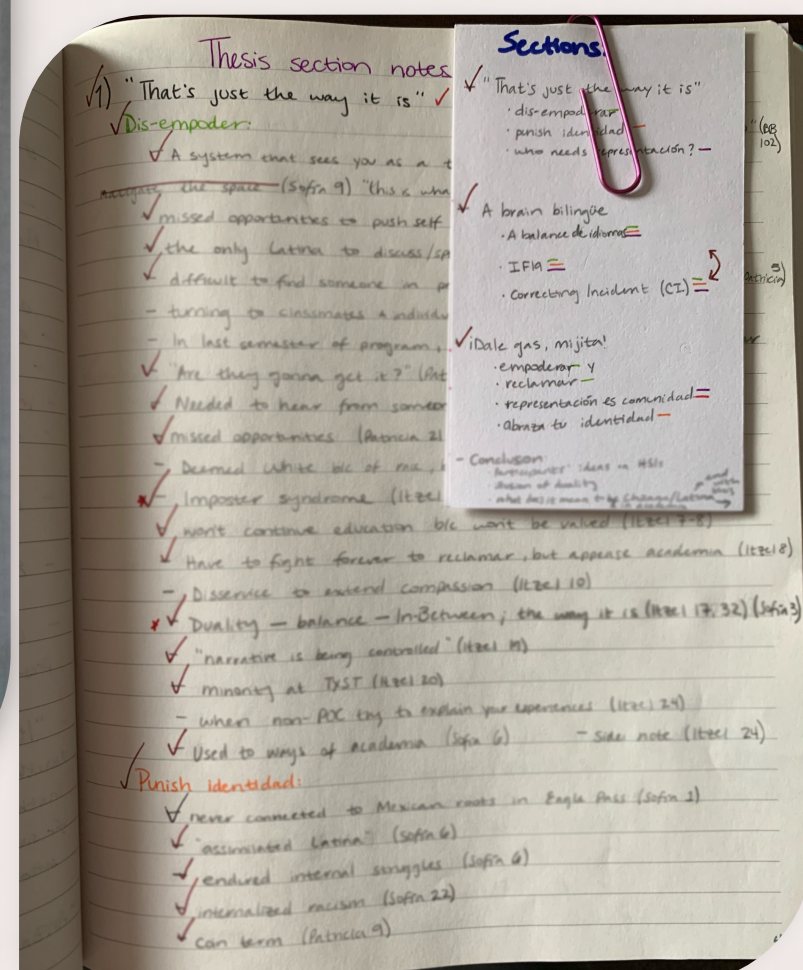 Thesis section notes
✓1) "That's just the way it is" ✓
✓Dis-empoder:
✓ A system that sees you as a
navigate the space (Sofia 9) "this is wha
✓ missed opportunities to push self
✓ the only Latina to discuss/sp
✓ difficult to find someone in
- turning to classmates + individu
- In last semester of program,
✓ "Are they gonna get it?" (Pat
✓ Needed to hear from someo
✓ missed opportunities (Patricia 21
- Deemed white b/c of
✓ Imposter syndrome (Itzel
✓ won't continue education b/c won't be valued (Itzel 7-8)
✓ Have to fight forever to reclamar, but appease academia (Itzel 8)
- Disservice to extend compassion (Itzel 10)
✓ Duality - balance - In-Between; the way it is (Itzel 17, 32) (Sofia 3)
✓ "narrative is being controlled" (Itzel
✓ minority at TXST (Itzel 20)
- when non-POC try to explain your experiences (Itzel 24)
✓ Used to ways of academia (Sofia 6) - side note (Itzel 24)
✓ Punish identidad:
✓ never connected to Mexican roots in Eagle Pass (Sofia 1)
✓ "assimilated Latina" (Sofia 6)
✓ endured internal struggles (Sofia 6)
✓ internalized racism (Sofia 22)
✓ Coin term (Patricia 9)
Sections
✓ "That's just the way it is"
· dis-empoderar
· punish identidad
· who needs representación?
✓ A brain bilingüe
· A balance de idiomas
· IFI9
· Correcting Incident (CI)
✓ ¡Dale gas, mijita!
· empoderar y
· reclamar
· representación es comunidad
· abraza tu identidad
- Conclusion:
participants' ideas on HSIs
of duality
what does it mean to be Chicana/Latina
"(BB
102)